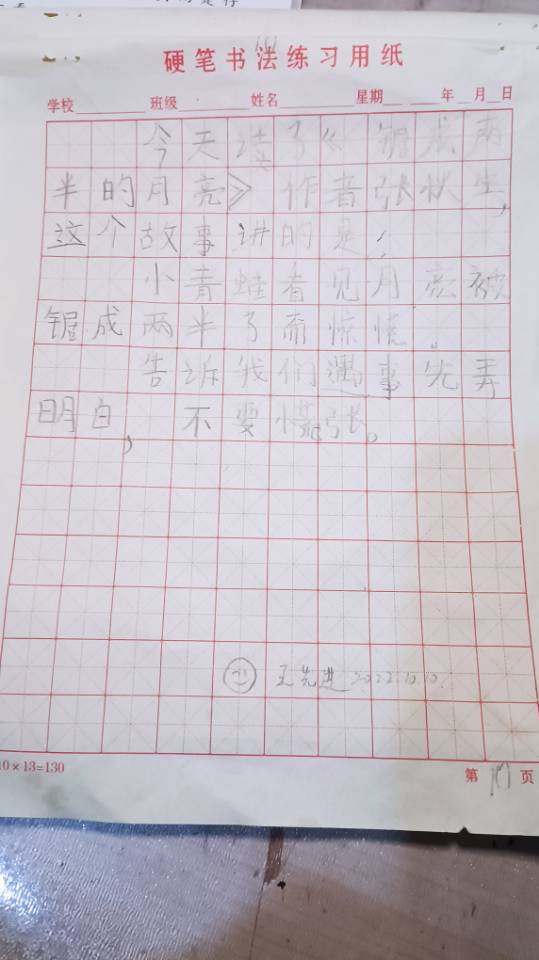 硬笔书法练习用纸
学校 班级 姓名 星期 年 月 日
今天读了《锯成两
半的月亮》作者张秋生,
这个故事讲的是,
小青蛙看见月亮被
锯成两半了而惊慌。
告诉我们遇事先弄
明白, 不要慌张。
王先进 2022.10.10.
10×13=130
第 页